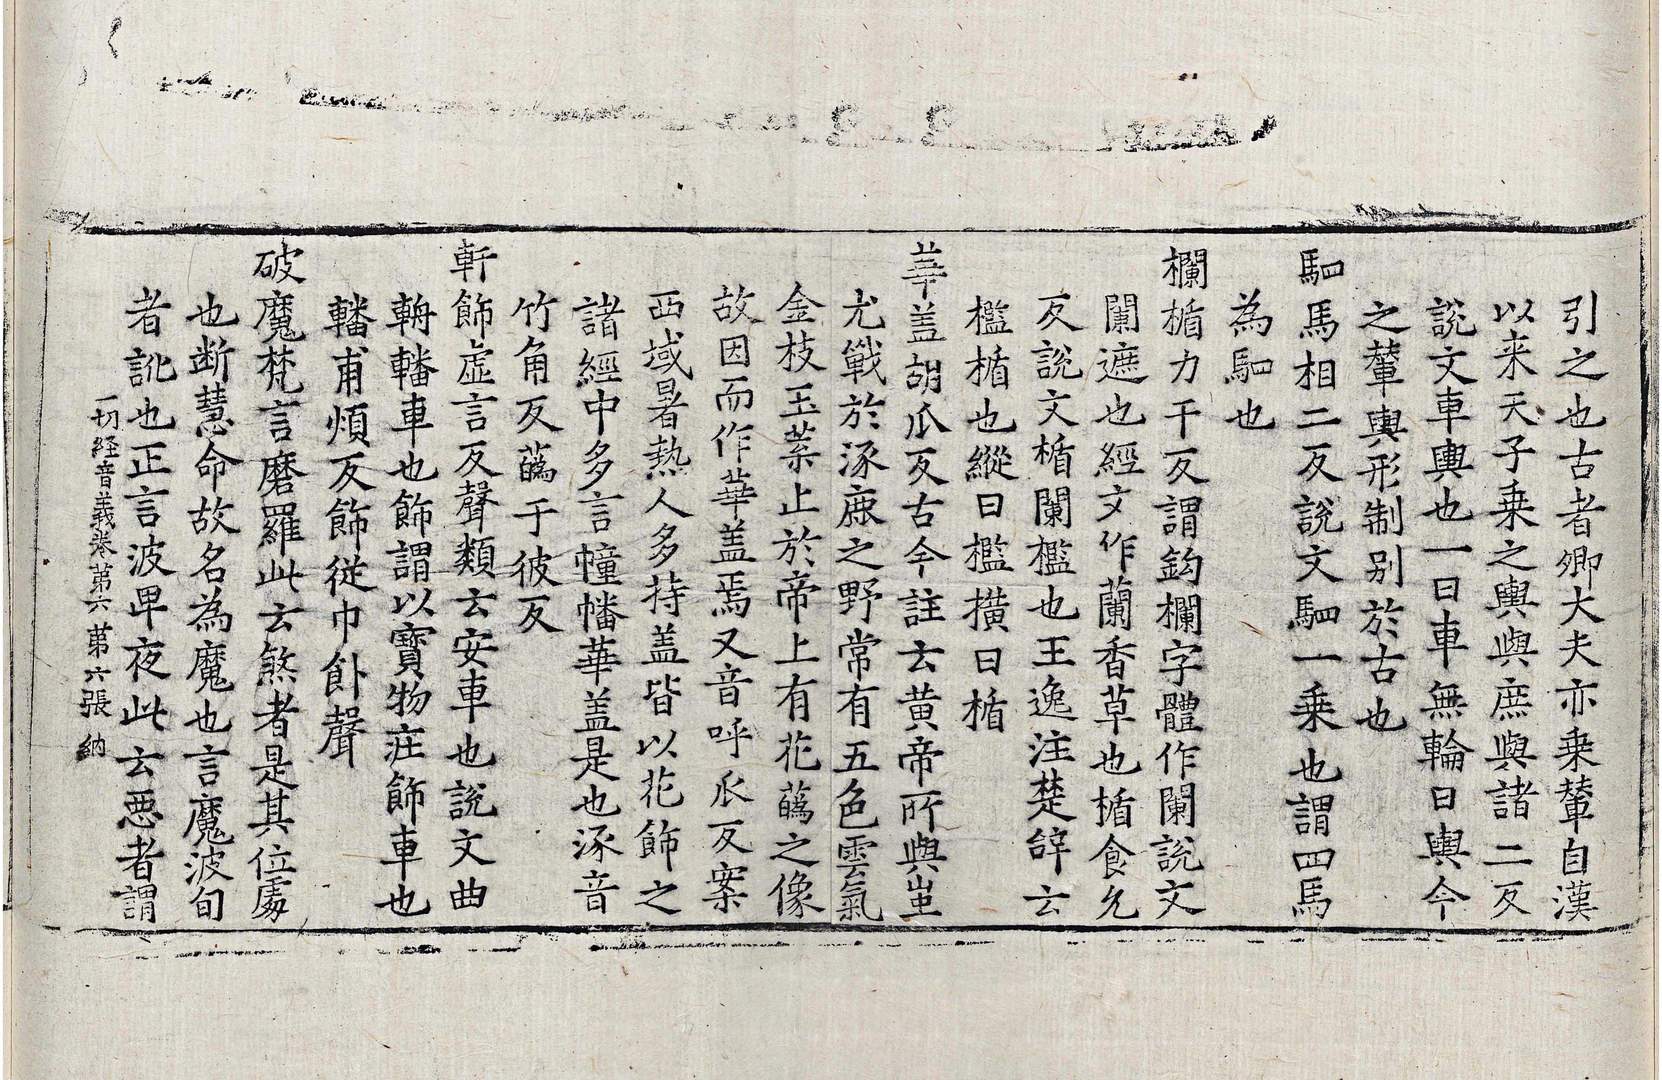 引之也古者卿大夫亦乗輦自漢
以来天子乗之輿與庶與諸二反
說文車輿也一曰車無輪曰輿今
之輦輿形制別於古也
駟馬相二反說文駟一乗也謂四馬
為駟也
欄楯力干反謂鈎欄字體作闌說文
闌遮也經文作蘭香草也楯食允
反說文楯闌檻也王逸注楚辝云
檻楯也縱曰檻撗曰楯
華盖胡瓜反古今註云黃帝所與蚩
尤戰於涿鹿之野常有五色雲氣
金枝玉葉止於帝上有花蘤之像
故因而作華盖焉又音呼瓜反案
西域暑熱人多持盖皆以花飾之
諸經中多言幢幡華盖是也涿音
竹角反蘤于彼反
軒飾虛言反聲類云安車也說文曲
輈轓車也飾謂以寳物莊飾車也
轓甫煩反飾従巾飤聲
破魔梵言磨羅此云煞者是其位處
也断慧命故名為魔也言魔波旬
者訛也正言波卑夜此云悪者謂
一切経音義卷第六 第六張 納